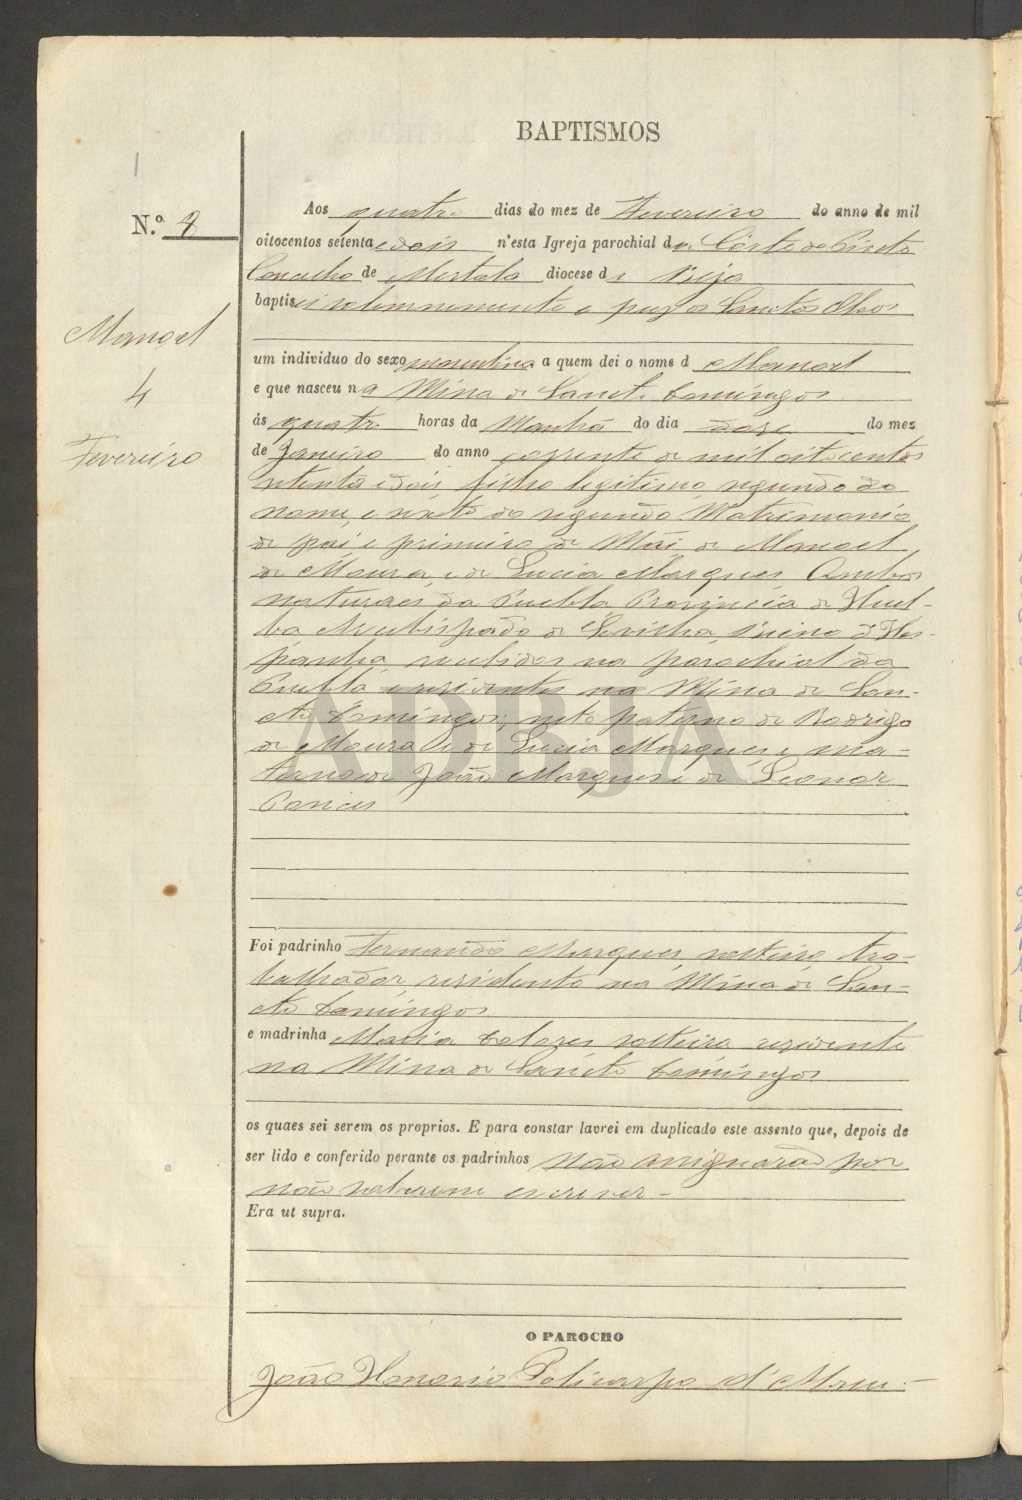 BAPTISMOS
N.º 8
Manoel
4
Fevereiro
Aos quatro dias do mez de Fevereiro do anno de mil
oitocentos setenta e dois n'esta Igreja parochial da Côrte do Pinto
Concelho de Mertola diocese de Beja
baptisei solemnemente e puz os Sanctos Oleos
um individuo do sexo masculino a quem dei o nome d Manoel
e que nasceu na Mina de Sancto Domingos
ás quatro horas da Manhã do dia doze do mez
de Janeiro do anno corrente de mil oitocentos
setenta e dois, filho legitimo segundo do
nome, e do segundo Matrimonio
de pai e primeiro de Mãi de Manoel
de Moura, e de Lucia Marques, Ambos
naturaes da Puebla Provincia de Huel-
ba Arcebispado de Sevilha, Reino d'Hes-
panha, recebidos na parochial da
Puebla e residentes na Mina de San-
cto Domingos; neto paterno de Rodrigo
de Moura e de Lucia Marques, e ma-
terno de João Marques e de Leonor
Ponces
Foi padrinho Fernando Marques, solteiro, tra-
balhador, residente na Mina de San-
cto Domingos
e madrinha Maria Dolores solteira residente
na Mina de Sancto Domingos
os quaes sei serem os proprios. E para constar lavrei em duplicado este assento que, depois de
ser lido e conferido perante os padrinhos não assignarão por
não saberem escrever -
Era ut supra.
O PAROCHO
João Honorio Policarpo d'
ADBJA